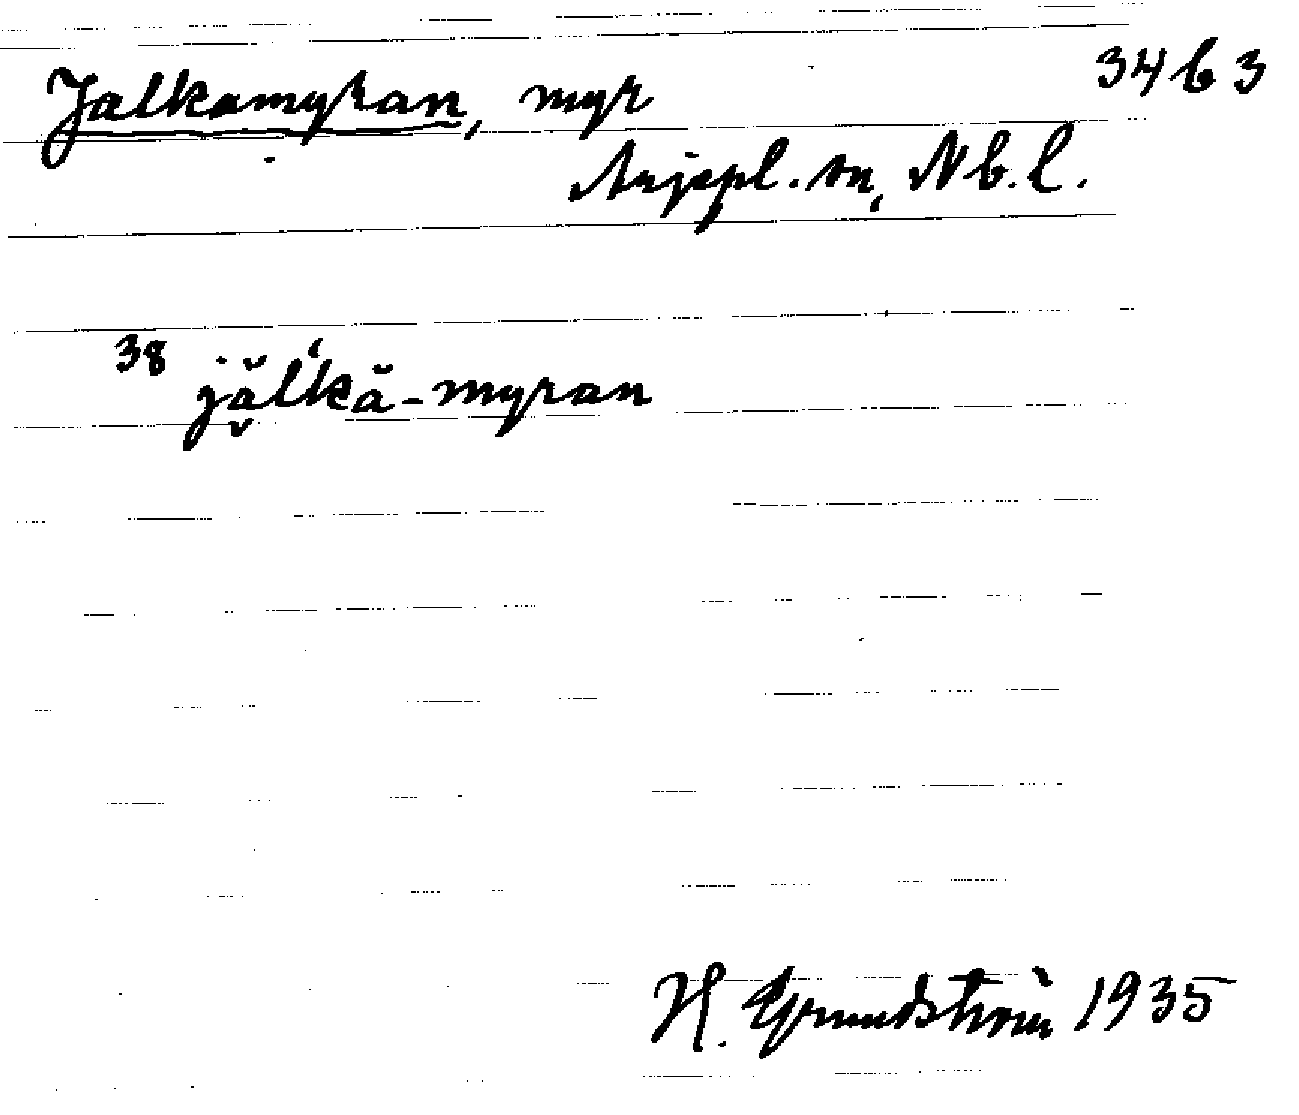 Jalkamyran, myr 34b3
Arjepl. sn, Nb. l.
38 jălˈkă-myran
H. Grundström 1935